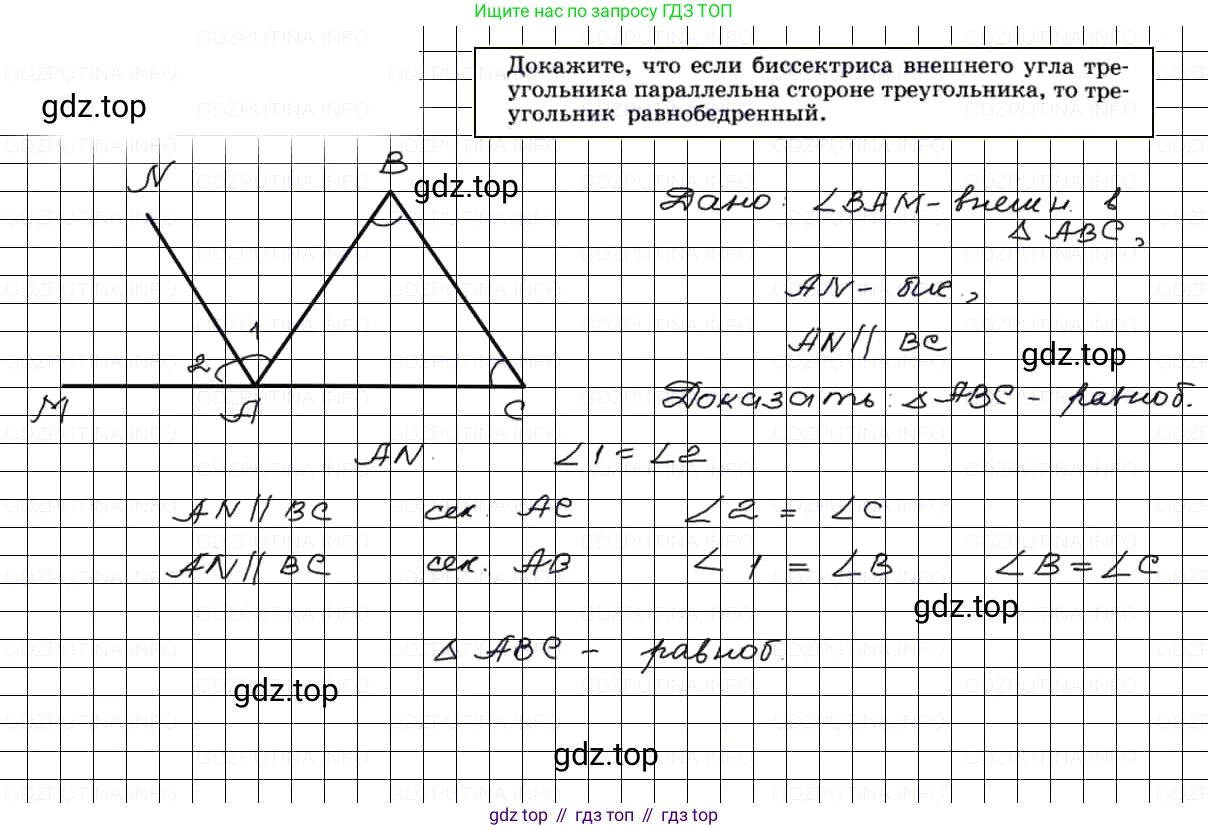 Ищите нас по запросу ГДЗ ТОП
Докажите, что если биссектриса внешнего угла тре-
угольника параллельна стороне треугольника, то тре-
угольник равнобедренный.
gdz.top
N
B
gdz.top
Дано: ∠BAM - внешн. в
△ABC,
AN - бис.,
AN || BC
gdz.top
1
2
M
A
C
Доказать: △ABC - равноб.
AN. ∠1 = ∠2
AN || BC сек. AC ∠2 = ∠C
AN || BC сек. AB ∠1 = ∠B ∠B = ∠C
gdz.top
△ABC - равноб.
gdz.top
gdz.top
gdz top // гдз топ // гдз top
GDZPUTINA.INFO